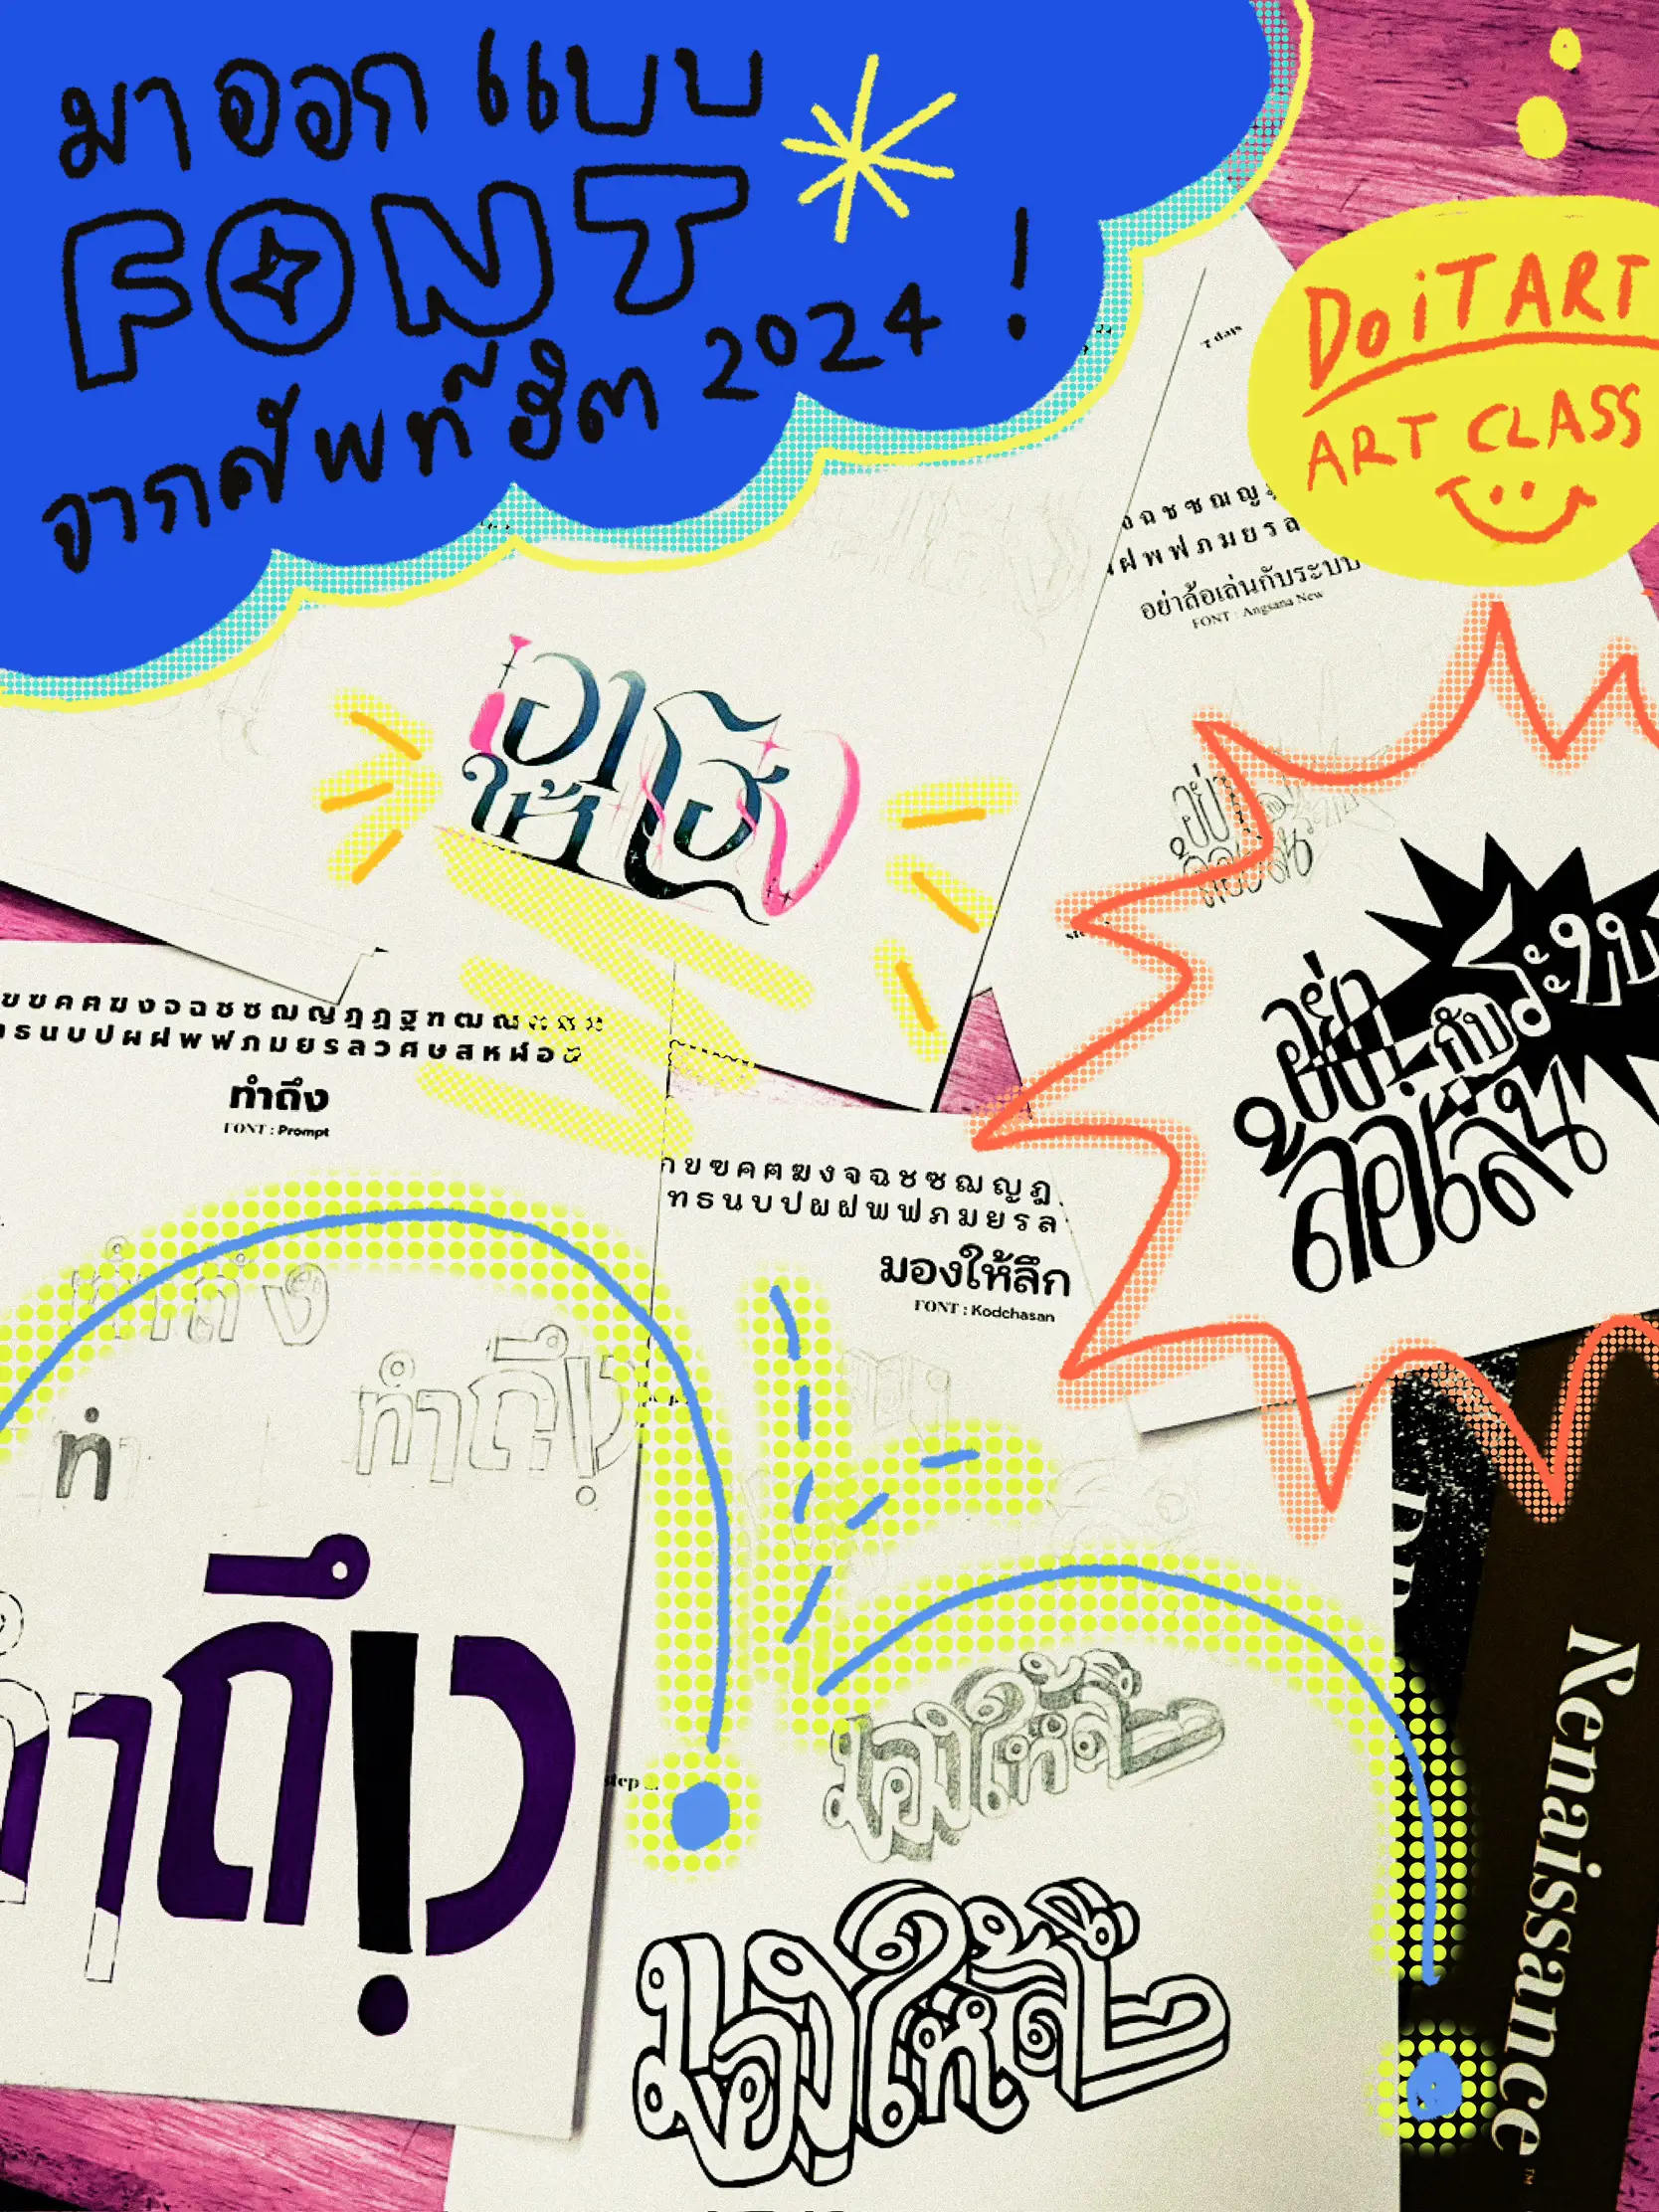 มาออกแบบ
FONT
จากศัพท์ฮิต 2024 !
DoiT ART
ART CLASS
7 days
ฉชซฌญ
ฝพฟภมยรล
อย่าล้อเล่นกับระบบ
FONT : Angsana New
เอาให้โฮ่ง
อย่า
ล้อเล่น
อย่าล้อเล่นกับระบบ
ขฃคฅฆงจฉชซฌญฎฏฐฑฒณ
ทธนบปผฝพฟภมยรลวศษสหฬอฮ
ทำถึง
FONT : Prompt
กขฃคฅฆงจฉชซฌญฎ
ทธนบปผฝพฟภมยรล
มองให้ลึก
FONT : Kodchasan
ทำถึง
ทำถึง
ท
ทำถึง
step
มองให้ลึก
มองให้ลึก
Renaissance™